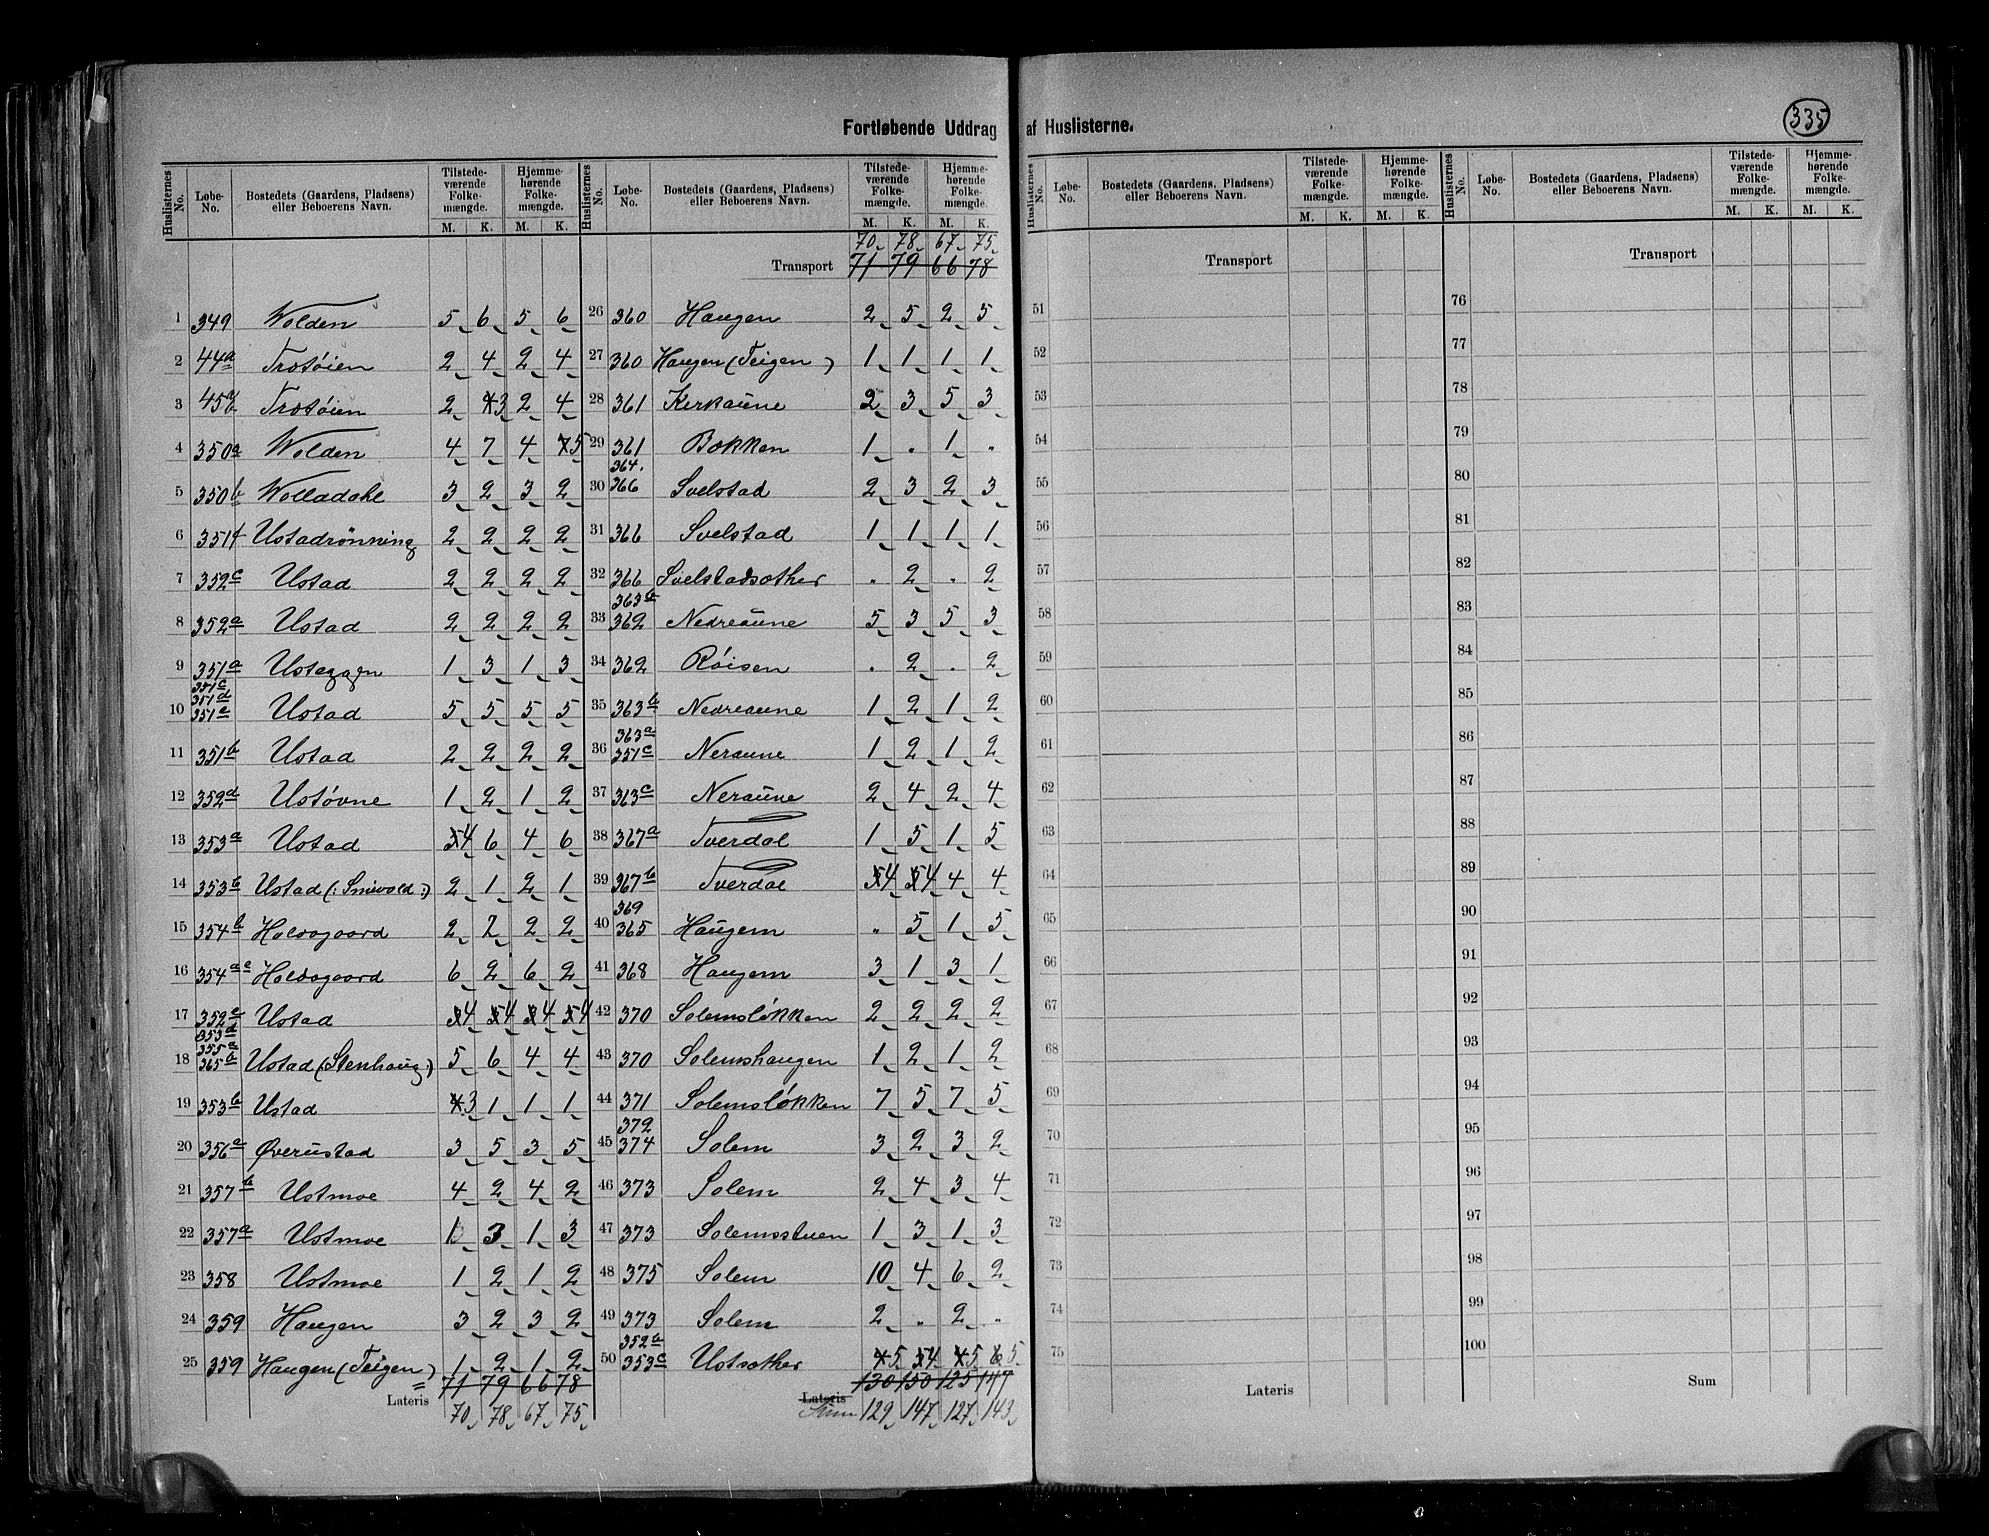 Fortløbende Uddrag af Huslisterne.
335
Huslisternes No. Løbe-No. Bostedets (Gaardens, Pladsens) eller Beboerens Navn. Tilstedeværende Folkemængde. M. K. Hjemmehørende Folkemængde. M. K.
1 349 Wolden 5 6 5 6
2 44a Trotøien 2 4 2 4
3 45 Trotøien 2 3 2 4
4 350a Wolden 4 7 4 5
5 350b Wolladahl 3 2 3 2
6 351f Ustadrønning 2 2 2 2
7 352c Ustad 2 2 2 2
8 352a Ustad 2 2 2 2
9 351a Usteggen 1 3 1 3
351c
351d
10 351e Ustad 5 5 5 5
11 351b Ustad 2 2 2 2
12 352d Ustøvne 1 2 1 2
13 353a Ustad 4 6 4 6
14 353b Ustad (: Smivold :) 2 1 2 1
15 354b Haldsgaard 2 2 2 2
16 354a Haldsgaard 6 2 6 2
17 352e Ustad 4 4 4 4
353d
355a
18 365b Ustad (Stenhaug :) 5 6 4 4
19 353b Ustad 3 1 1 1
20 356a Øverustad 3 5 3 5
21 357b Ustmoe 4 2 4 2
22 357a Ustmoe 1 3 1 3
23 358 Ustmoe 1 2 1 2
24 359 Haugen 3 2 3 2
25 359 Haugen (Teigen) 1 2 1 2
71 79 66 78
Lateris 70 78 67 75
Huslisternes No. Løbe-No. Bostedets (Gaardens, Pladsens) eller Beboerens Navn. Tilstedeværende Folkemængde. M. K. Hjemmehørende Folkemængde. M. K.
70 78 67 75
Transport 71 79 66 78
26 360 Haugen 2 5 2 5
27 360 Haugen (Teigen) 1 1 1 1
28 361 Kerkaune 2 3 5 3
29 361 Bakken 1 " 1 "
364.
30 366 Svelstad 2 3 2 3
31 366 Svelstad 1 1 1 1
32 366 Svelstadsether " 2 " 2
363b
33 362 Nedreaune 5 3 5 3
34 362 Røisen " 2 " 2
35 363b Nedreaune 1 2 1 2
363a
36 351c Neraune 1 2 1 2
37 363c Neraune 2 4 2 4
38 367a Tverdal 1 5 1 5
39 367b Tverdal 4 4 4 4
369
40 365 Haugem " 5 1 5
41 368 Haugem 3 1 3 1
42 370 Solemsløkken 2 2 2 2
43 370 Solemshaugen 1 2 1 2
44 371 Solemsløkken 7 5 7 5
372
45 374 Solem 3 2 3 2
46 373 Solem 2 4 3 4
47 373 Solemsstuen 1 3 1 3
48 375 Solem 10 4 6 2
49 373 Solem 2 " 2 "
352b
50 353c Ustsether 5 4 5 5
130 150 125 147
Lateris
Sum 129 147 127 143
Huslisternes No. Løbe-No. Bostedets (Gaardens, Pladsens) eller Beboerens Navn. Tilstedeværende Folkemængde. M. K. Hjemmehørende Folkemængde. M. K.
Transport
51
52
53
54
55
56
57
58
59
60
61
62
63
64
65
66
67
68
69
70
71
72
73
74
75
Lateris
Huslisternes No. Løbe-No. Bostedets (Gaardens, Pladsens) eller Beboerens Navn. Tilstedeværende Folkemængde. M. K. Hjemmehørende Folkemængde. M. K.
Transport
76
77
78
79
80
81
82
83
84
85
86
87
88
89
90
91
92
93
94
95
96
97
98
99
100
Sum